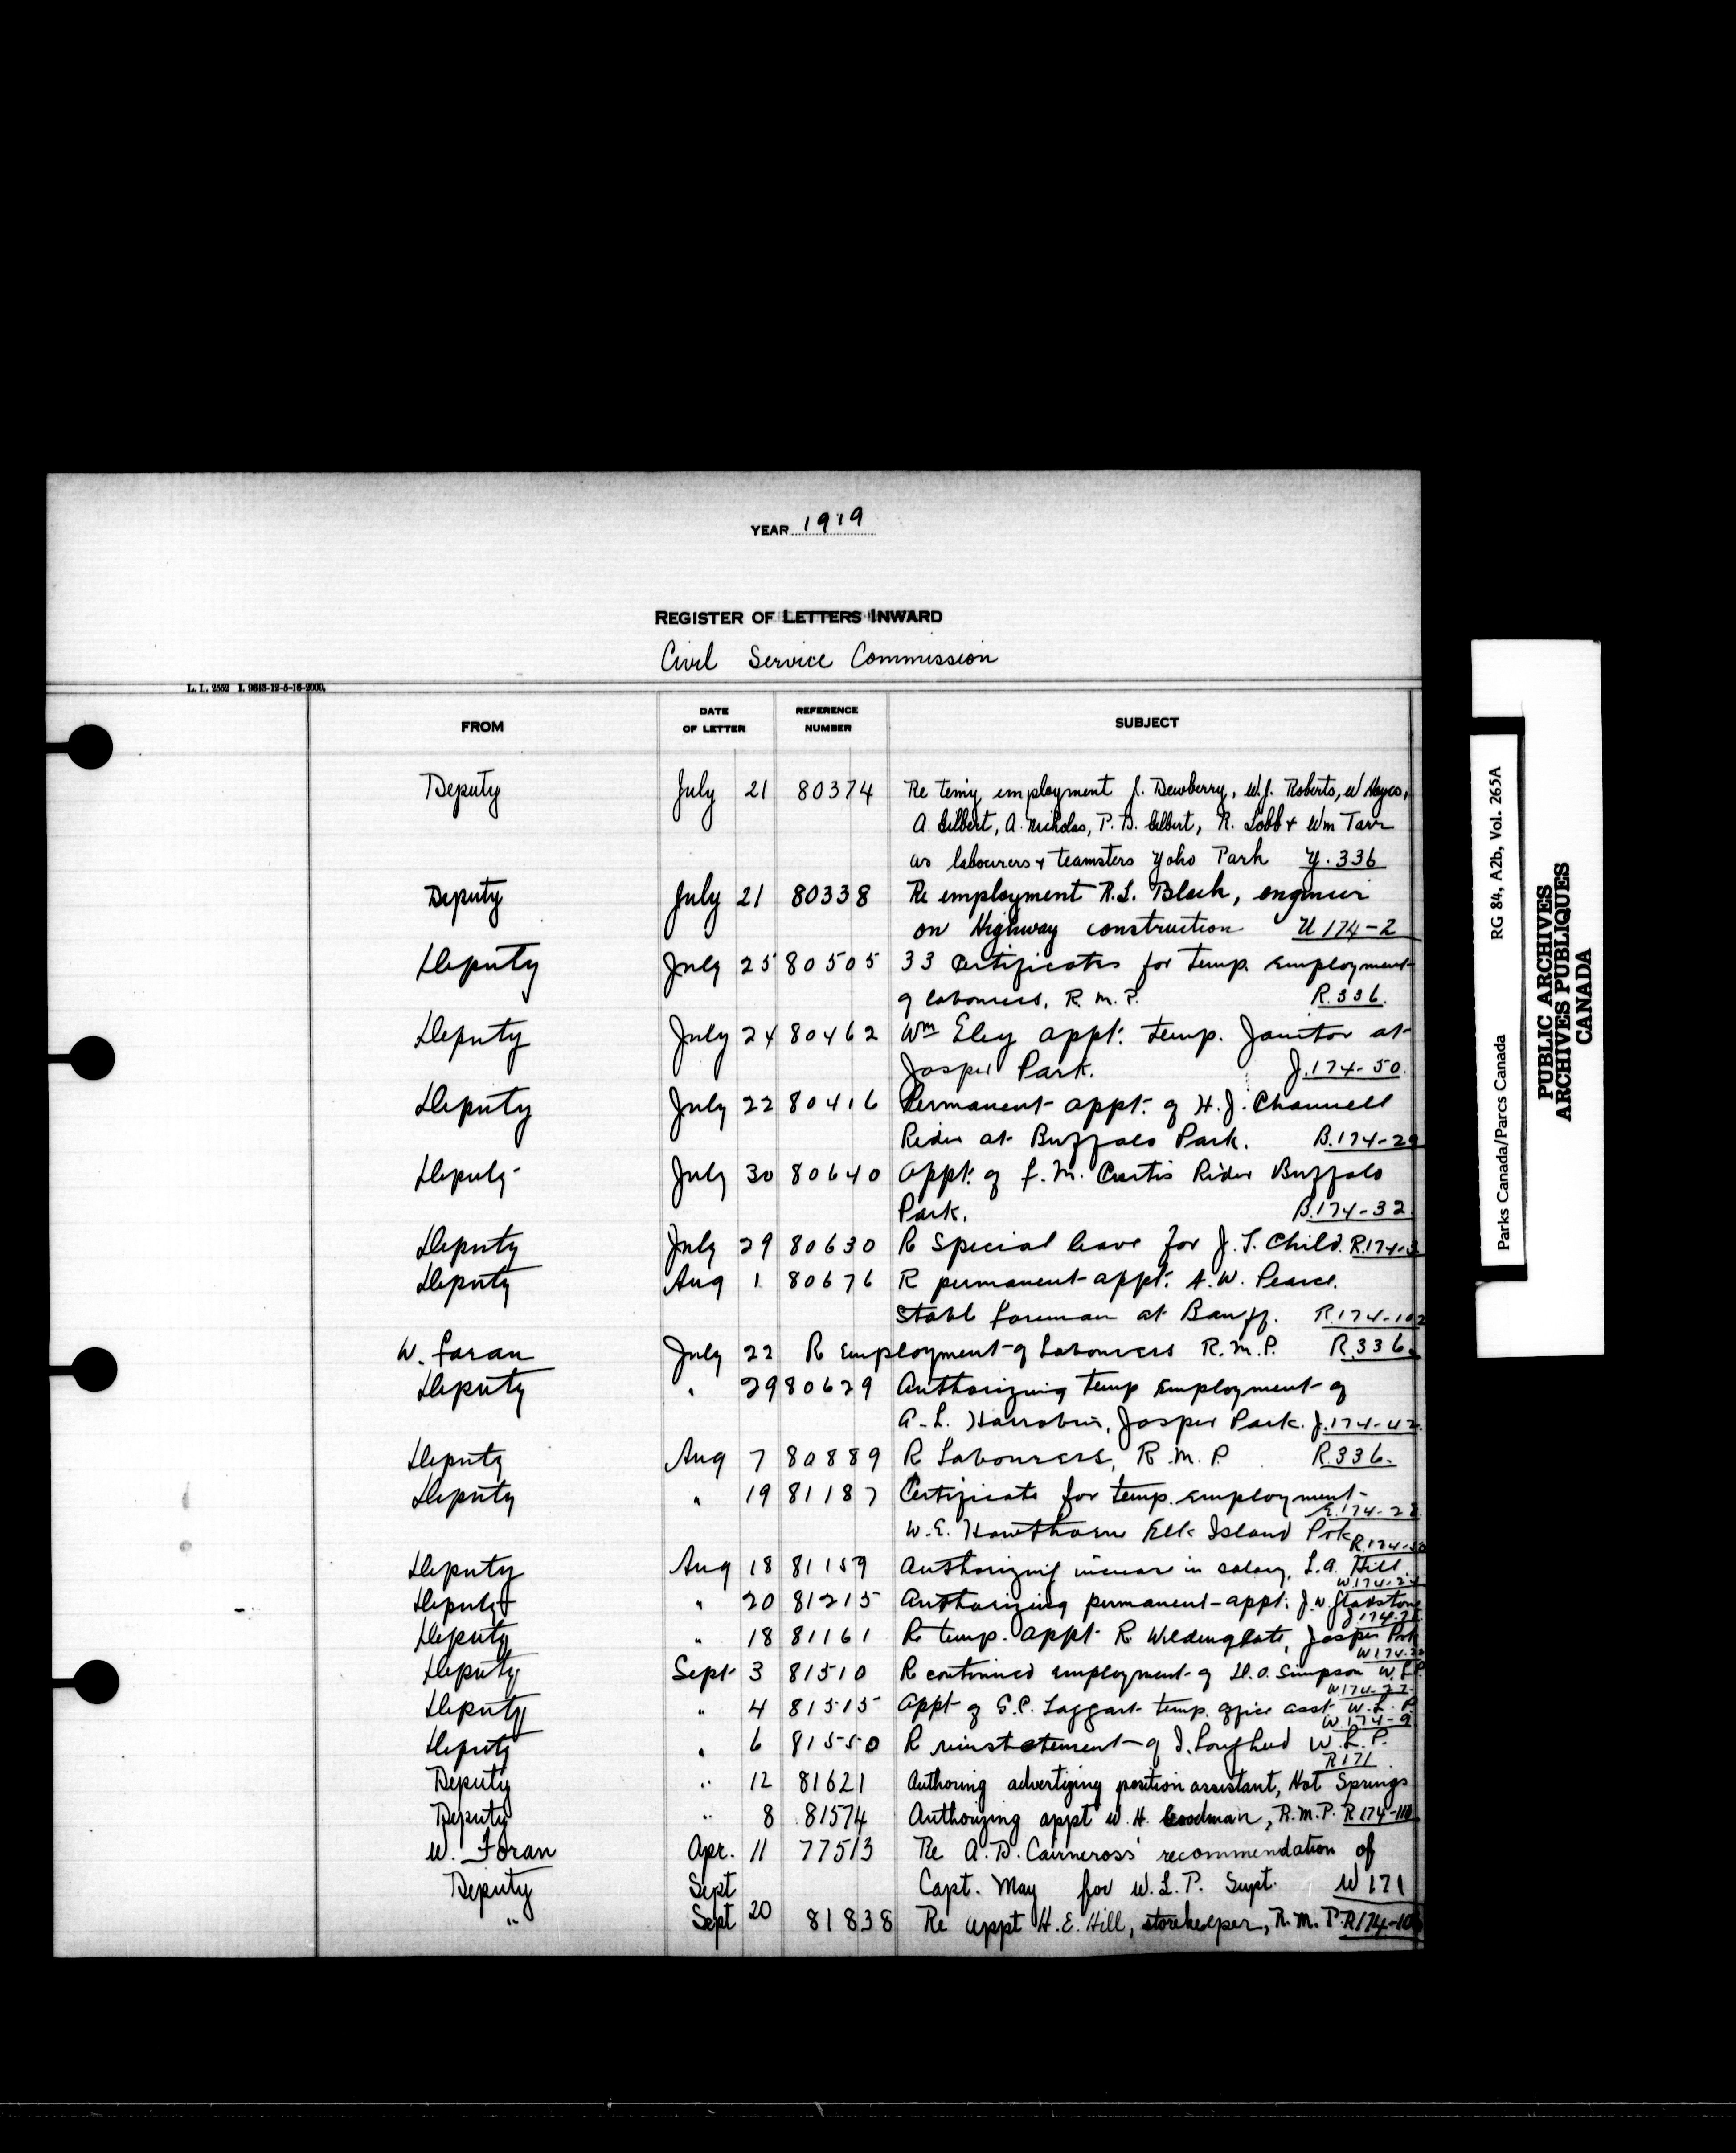 YEAR 1919
REGISTER OF LETTERS INWARD
Civil Service Commission
L. I. 2552 I. 9643-12-5-16-2000.
FROM DATE OF LETTER REFERENCE NUMBER SUBJECT
Deputy July 21 80374 Re temp employment J. Dewberry, W.J. Roberts, W Hayes,
A. Gilbert, A. Nicholas, P. B. Gilbert, R. Lobb & Wm Tarr
as labourers & teamsters Yoho Park Y. 336
Deputy July 21 80338 Re employment R.L. Black, engineer
on Highway construction U 174-2
Deputy July 25 80505 33 Certificates for temp. employment
of labourers, R. M. P. R.336.
Deputy July 24 80462 Wm Eley appt. temp. Janitor at
Jasper Park. J.174-50.
Deputy July 22 80416 Permanent appt. of H. J. Channell
Rider at Buffalo Park. B.174-29
Deputy July 30 80640 Appt. of f. M. Curtis Rider Buffalo
Park. B.174-32.
Deputy July 29 80630 R Special leave for J. T. Child. R.174-3
Deputy Aug 1 80676 R permanent appt. A. W. Pearce.
Stabl foreman at Banff. R.174-102
W. Foran July 22 R Employment of Labourers R.M.P. R.336.
Deputy " 29 80629 Authorizing temp employment of
A. L. Horrobin, Jasper Park. J.174-42.
Deputy Aug 7 80889 R Labourers, R. M. P. R.336.
Deputy " 19 81187 Certificate for temp. employment
E.174-28
W. E. Hawthorne Elk Island Prk
Deputy Aug 18 81159 Authorizing increase in salary, L.A. Hill.
Deputy " 20 81215 Authorizing permanent appt. J. N. Gladstone
Deputy " 18 81161 Re temp. appt R. Jasper Park
Deputy Sept 3 81510 R continued employment of D. O. Simpson W.L.P.
W.174-27
Deputy " 4 81515 Appt of E.C. Taggart temp. office asst W. L. P.
W.174-9
Deputy " 6 81550 R reinstatement of J. Lougheed W. L. P.
R171
Deputy " 12 81621 Authoring advertizing position assistant, Hot Springs
Deputy " 8 81574 Authorizing appt W. H. Goodman, R.M.P. R174-110
W. Foran Apr. 11 77513 Re A. B. Cairncross' recommendation of
Deputy Sept Capt. May for W. L. P. Supt. W 171
" Sept 20 81838 Re appt H. E. Hill, storekeeper, R.M.P. R174-10
Parks Canada/Parcs Canada RG 84, A2b, Vol. 265A
PUBLIC ARCHIVES
ARCHIVES PUBLIQUES
CANADA